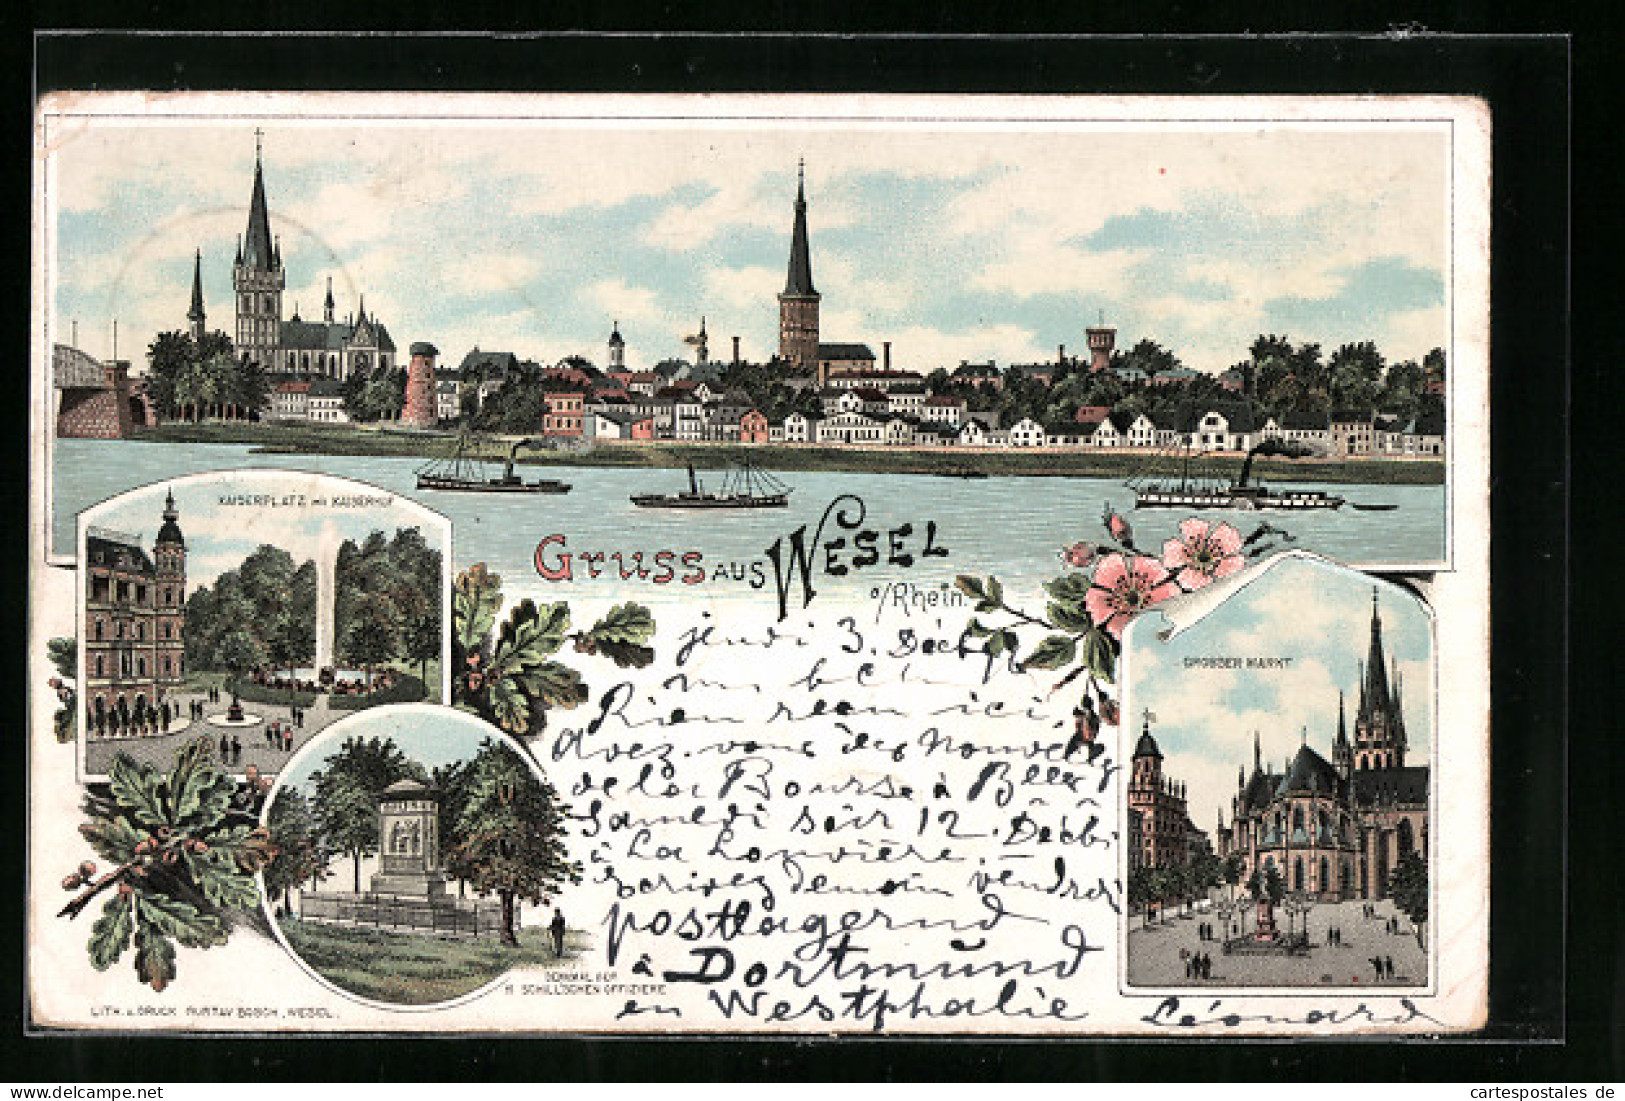 KAISERPLATZ MIT KAISERHOF
GRUSS AUS WESEL
a/Rhein.
GROSSER MARKT
jeudi 3. Décb
Rien reçu ici,
Avez-vous des Nouvelles
de la Bourse à
Samedi soir 12. Décb
à La Louvière.
Ecrivez demain vendredi
postlagernd
à Dortmund
en Westphalie Léonard
DENKMAL DER
11 SCHILL'SCHEN OFFIZIERE
LITH. u. DRUCK GUSTAV BOSCH, WESEL.
cartespostales de